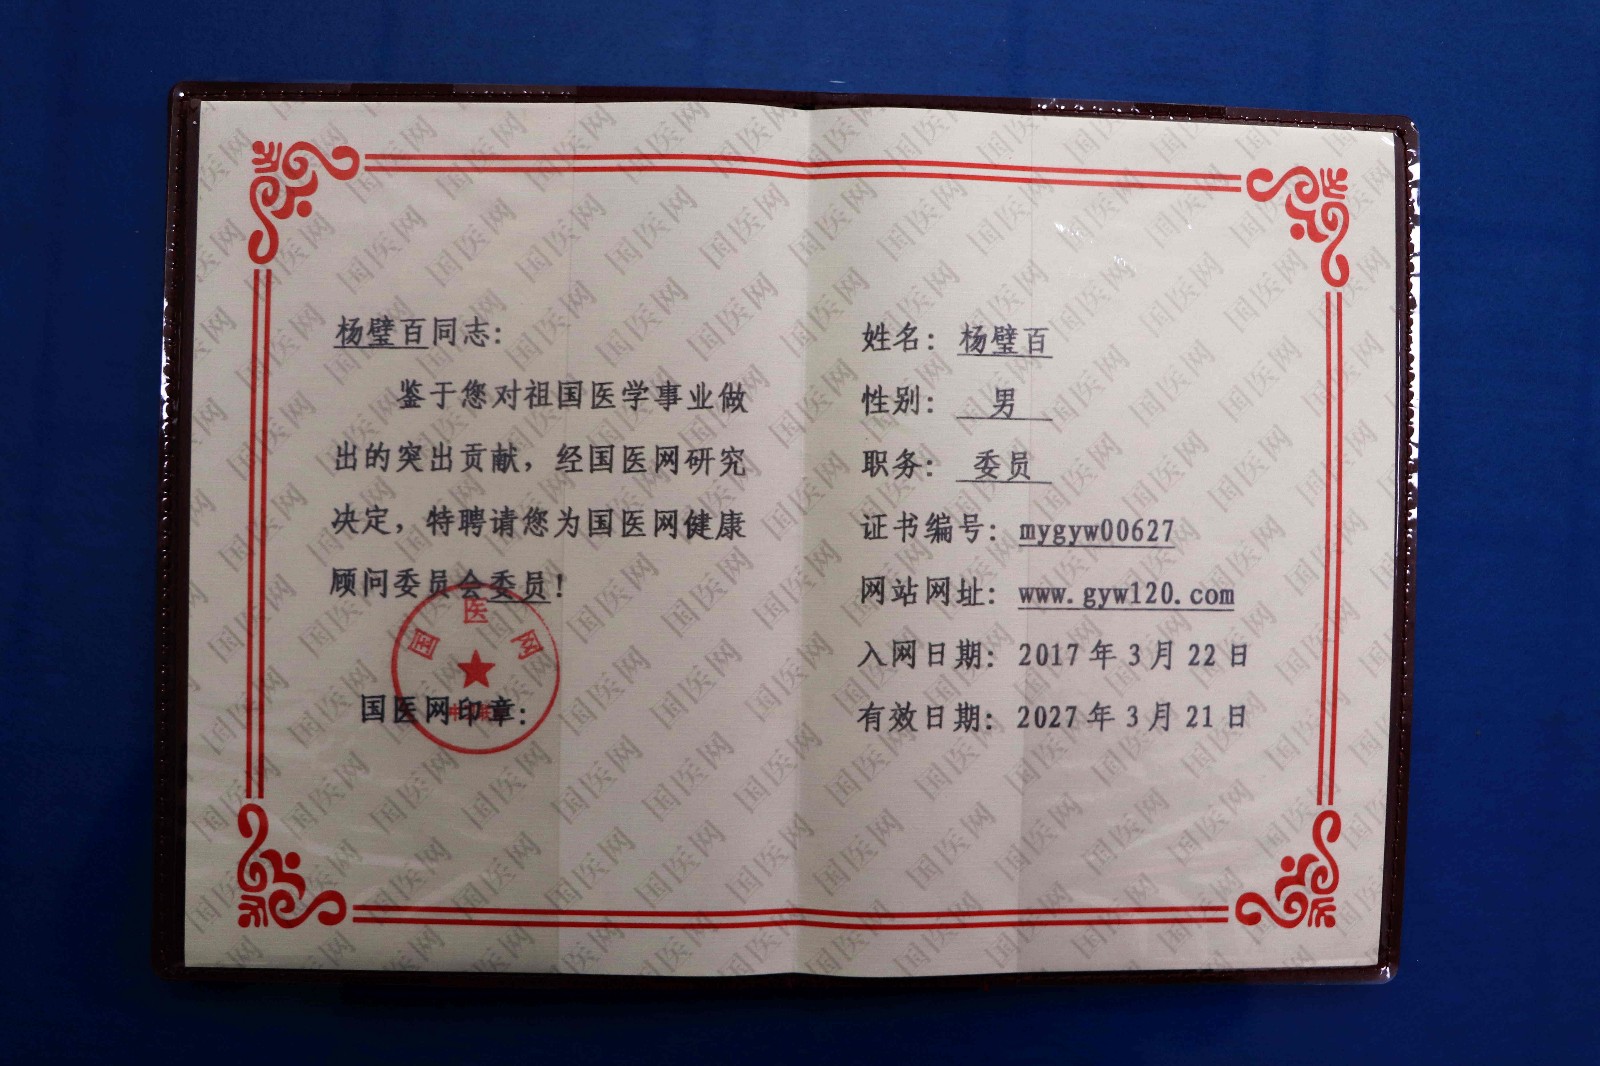 杨璧百同志：
鉴于您对祖国医学事业做
出的突出贡献，经国医网研究
决定，特聘请您为国医网健康
顾问委员会委员！
国医网
国医网印章：
姓名：杨璧百
性别：男
职务：委员
证书编号：mygyw00627
网站网址：www.gyw120.com
入网日期：2017年3月22日
有效日期：2027年3月21日